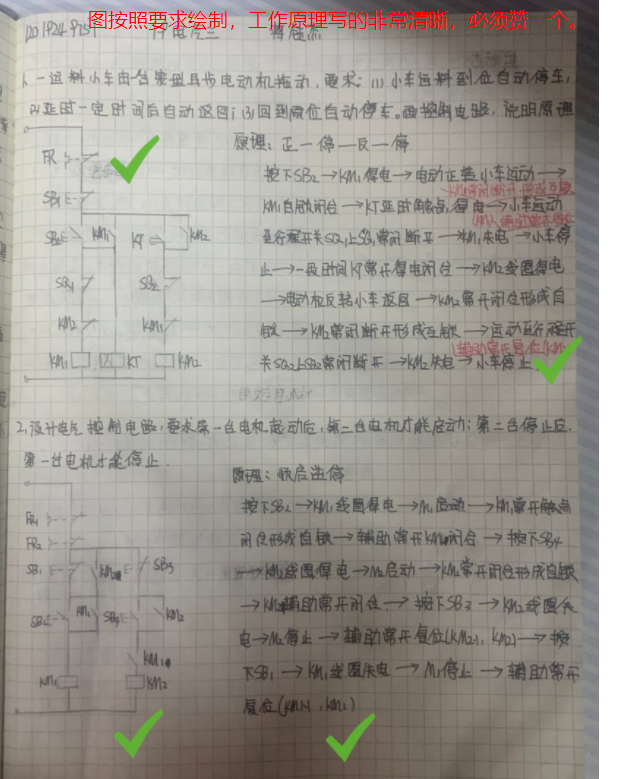 图按照要求绘制，工作原理写的非常清晰，必须赞 个。
1201924
1、一运料小车由一台笼型异步电动机拖动，要求：(1)小车运料到位自动停车；
(2)延时一定时间后自动返回；(3)回到原位自动停车。画控制电路，说明原理
原理：正一停一反一停
FR
按下SB2→KM1得电→电动正转小车运动→
KM1常闭断开形成互锁
SB1
KM1自锁闭合→KT延时触点得电→小车运动
辅助常开
SB2 KM1 KT KM2
至行程开关SQ1上SB3常闭断开→KM1失电→小车停
止→一段时间KT常开得电闭合→KM2线圈得电
SB2
→电动机反转小车返回→KM2常开闭合形成自
KM2 KM1
锁→KM2常闭断开形成互锁→运动至行程开
辅助常开复位(KM2)
KM1 KT KM2
关SQ2上SB2常闭断开→KM2失电→小车停止
2、设计电气控制电路，要求第一台电机起动后，第二台电机才能启动；第二台停止后，
第一台电机才能停止．
原理：顺启逆停
按下SB2→KM1线圈得电→M1启动→KM1常开触点
FR1
闭合形成自锁→辅助常开KM1闭合→按下SB4
FR2
SB1 KM2 SB3
→KM2线圈得电→M2启动→KM2常开闭合形成自锁
→KM2辅助常开闭合→按下SB3→KM2线圈失
SB2 KM1 KM2
电→M2停止→辅助常开复位(KM2-1, KM2)→按
KM1
下SB1→KM1线圈失电→M1停止→辅助常开
KM1 KM2
复位(KM1-1, KM1)